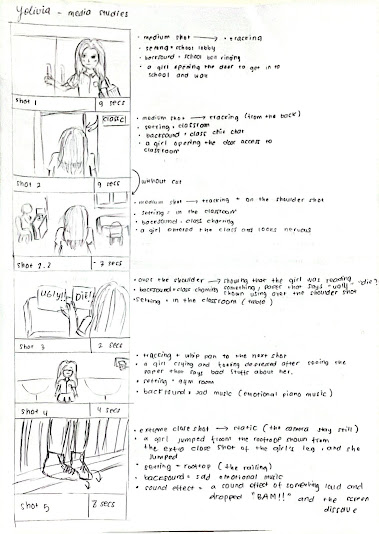 Yolivia - media studies
• medium shot → • tracking
• setting = school lobby
• backsound = school bell ringing
• a girl opening the door to get in to
school and walk
shot 1
9 secs
• medium shot → tracking (from the back)
• setting = classroom
• backsound = class chit chat
• a girl opening the door access to
classroom
CLASS
shot 2
9 secs
without cut
• medium shot → tracking + on the shoulder shot
• setting = in the classroom
• backsound = class chatting
• a girl entered the class and looks nervous
shot 2.2
- 7 secs
• over the shoulder → showing that the girl was reading
• backsound = class chatting something, paper that says "ugly", "die"?
shown using over the shoulder shot
• setting = in the classroom (table)
UGLY!!
DIE!
shot 3
2 secs
• tracking + whip pan to the next shot
• a girl crying and looking depressed after seeing the
paper that says bad stuffs about her.
• setting = gym room
• backsound = sad music (emotional piano music)
shot 4
4 secs
• extreme close shot → static (the camera stay still)
• a girl jumped from the rooftop shown from
the extra close shot of the girl's leg, and she
jumped
• setting = rooftop (the railing)
• backsound = sad emotional music
• sound effect = a sound effect of something loud and
dropped "BAM!!" and the screen
dissolve
shot 5
8 secs